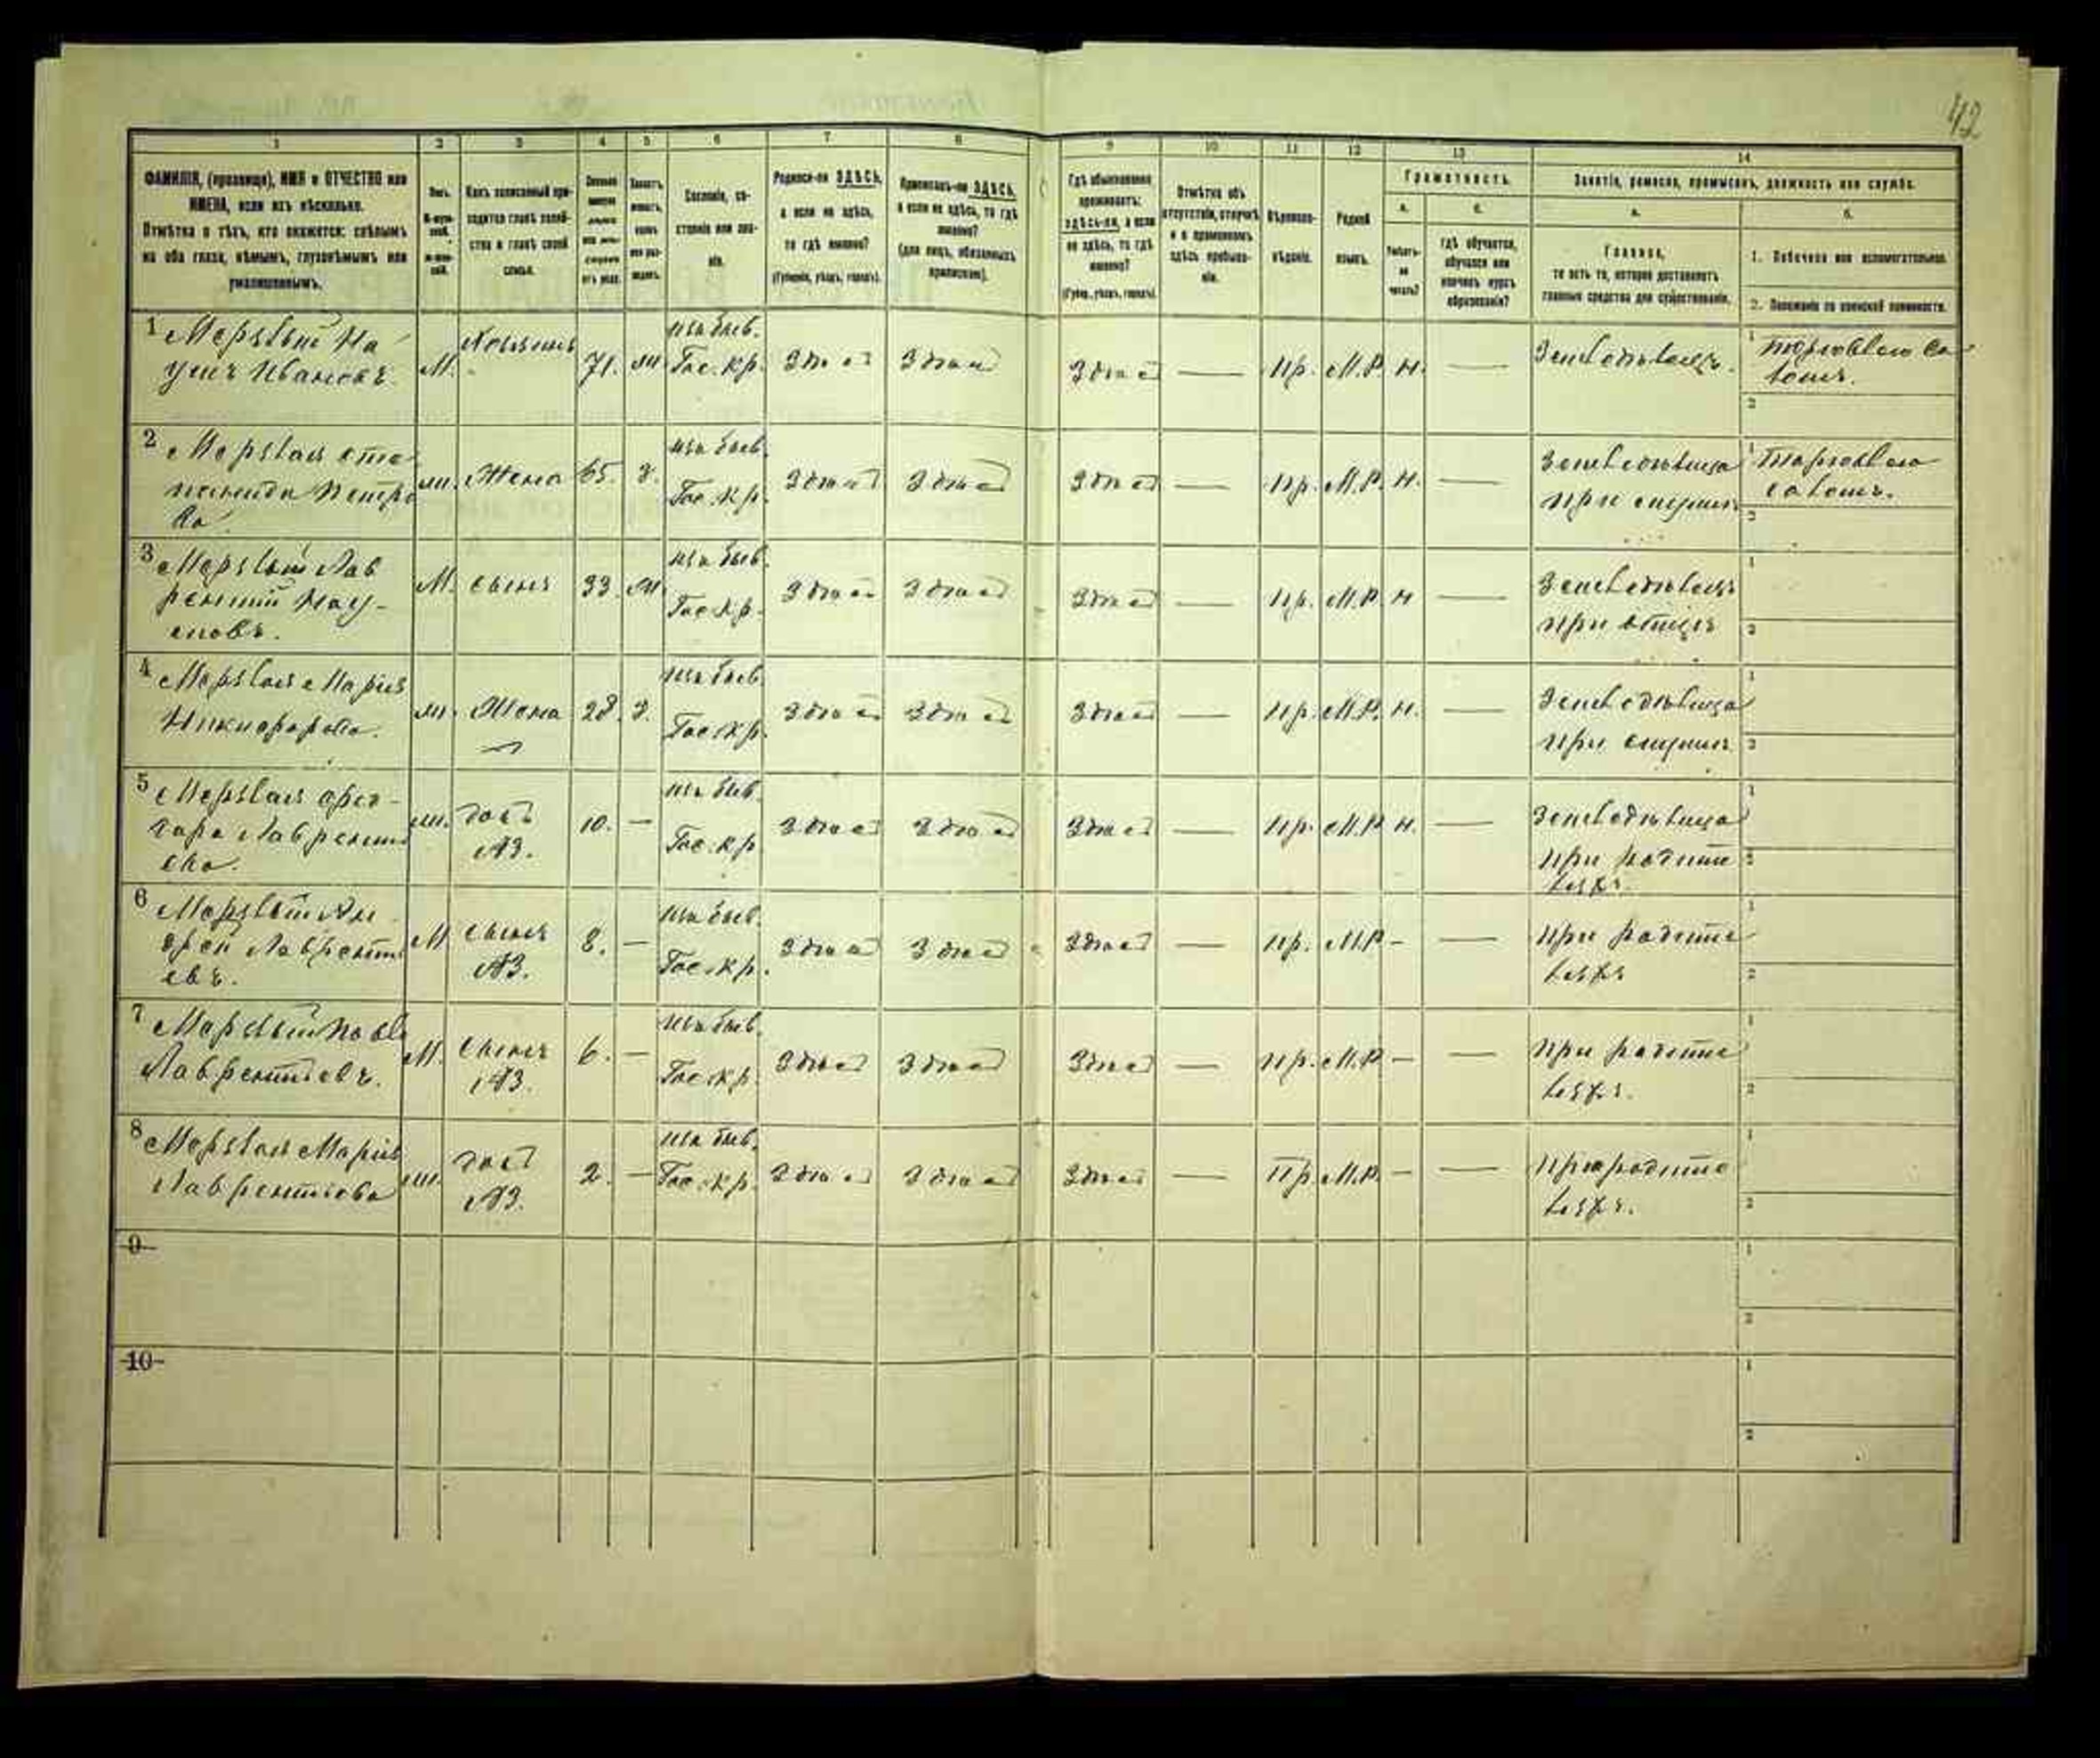 42
1 2 3 4 5 6 7 8 9 10 11 12 13 14
ФАМИЛІЯ, (прозвище), ИМЯ и ОТЧЕСТВО или
ИМЕНА, если ихъ нѣсколько.
Отмѣтка о тѣхъ, кто окажется: слѣпымъ
на оба глаза, нѣмымъ, глухонѣмымъ или
умалишеннымъ.
Полъ.
М-муж-
ской.
Ж-жен-
скій.
Какъ записанный при-
ходится главѣ хозяй-
ства и главѣ своей
семьи.
Сословіе, со-
стояніе или зва-
ніе.
Родился-ли ЗДѢСЬ,
а если не здѣсь,
то гдѣ именно?
(Губернія, уѣздъ, городъ).
Приписанъ-ли ЗДѢСЬ,
а если не здѣсь, то гдѣ
именно?
(для лицъ, обязанныхъ
припискою).
Гдѣ обыкновенно
проживаетъ:
ЗДѢСЬ-ли, а если
не здѣсь, то гдѣ
именно?
(Губер., уѣздъ, городъ).
Отмѣтка объ
отсутствіи, отлучкѣ
и о временномъ
здѣсь пребыва-
ніи.
Вѣроиспо-
вѣданіе.
Родной
языкъ.
Грамотность.
а.
Умѣетъ-
ли
читать?
б.
гдѣ обучается,
обучался или
кончилъ курсъ
образованія?
Занятіе, ремесло, промыселъ, должность или служба.
а.
Главное,
то есть то, которое доставляетъ
главныя средства для существованія.
б.
1. Побочное или вспомогательное.
2. Положеніе по воинской повинности.
1 Мерзлый На
умъ Ивановъ. М. Хозяинъ 71. ж Гос. кр. Здѣсь Здѣсь Здѣсь — Пр. М.Р. Н. — Земледѣлецъ. 1 торговля са
ломъ.
из быв.
2
2 Мерзлая Сте
панида Петро
ва. ж. Жена 65. з. из быв. Гос. кр. Здѣсь Здѣсь Здѣсь — Пр. М.Р. Н. — Земледѣлица
при мужѣ 1 торговля
саломъ.
2
3 Мерзлый Лав
рентій Нау-
мовъ. М. сынъ 33. ж. из быв. Гос. кр. Здѣсь Здѣсь Здѣсь — Пр. М.Р. Н — Земледѣлецъ
при отцѣ 1
2
4 Мерзлая Марія
Никифорова. ж. Жена 28. з. из быв. Гос. кр. Здѣсь Здѣсь Здѣсь — Пр. М.Р. Н. — Земледѣлица
при мужѣ 1
2
5 Мерзлая
Лаврентье
ва. ж. дочь
№3. 10. — из быв. Гос. кр. Здѣсь Здѣсь Здѣсь — Пр. М.Р. Н. — Земледѣлица
при родите
ляхъ. 1
2
6 Мерзлый Ан
дрей Лаврентьевъ. М. сынъ
№3. 8. — из быв. Гос. кр. Здѣсь Здѣсь Здѣсь — Пр. М.Р. - — при родите
ляхъ 1
2
7 Мерзлый Павел
Лаврентьевъ. М. сынъ
№3. 6. — из быв. Гос. кр. Здѣсь Здѣсь Здѣсь — Пр. М.Р — — при родите
ляхъ. 1
2
8 Мерзлая Марія
Лаврентьева ж. дочь
№3. 2. — из быв. Гос. кр. Здѣсь Здѣсь Здѣсь — Пр М.Р. — — при родите
ляхъ. 1
2
9 1
2
10 1
2